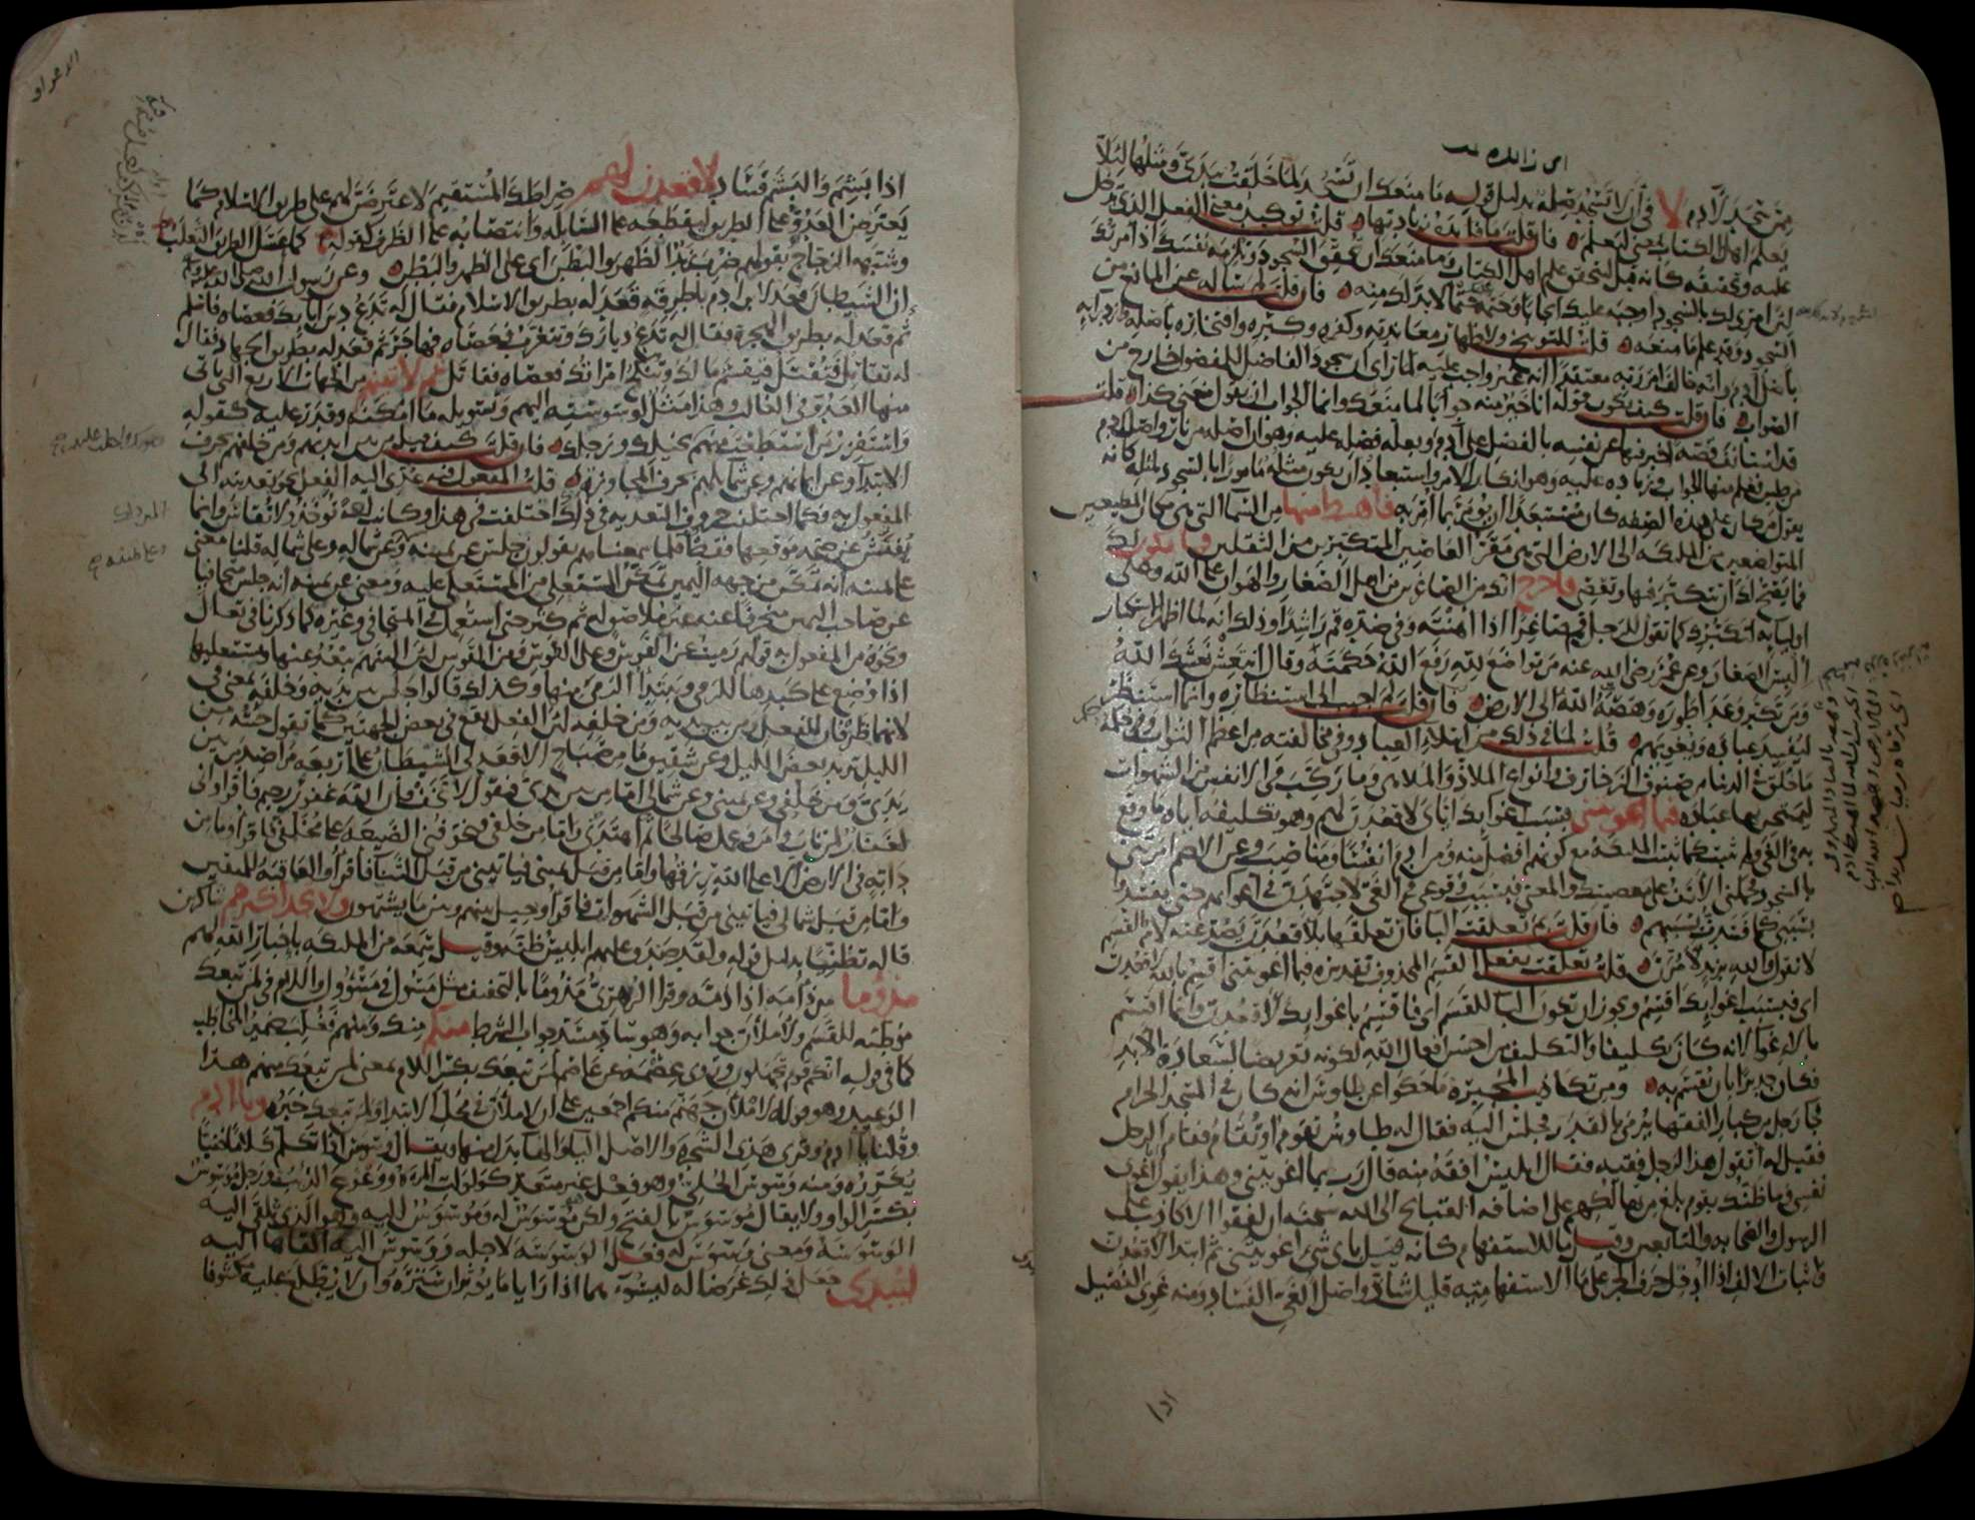 اى زائدة
ممن سجد لآدم لا في ان لا تسجد صلة بدليل قوله ما منعك ان تسجد لما خلقت بيدى ومثلها لئلا
يعلم اهل الكتاب بمعنى ليعلم فان قلت ما فائدة زيادتها قلت توكيد معنى الفعل الذي تدخل
عليه وتحقيقه كانه قيل ليتحقق علم اهل الكتاب وما منعك ان تحقق السجود وتلزمه نفسك اذ امرتك
لان امرى لك بالسجود اوجبه عليك ايجابا وحتمه حتما لا بد لك منه فان قلت لم ساله عن المانع من
السجود وقد علم ما منعه قلت للتوبيخ ولاظهار معاندته وكفره وكبره وافتخاره باصله وازدرائه
باصل آدم وانه خالف امر ربه معتقدا انه غير واجب عليه لما راى ان سجود الفاضل للمفضول خارج من
الصواب فان قلت كيف يكون قوله انا خير منه جوابا لما منعك وانما الجواب ان يقول منعنى كذا قلت
قد استانف قصة اخبر فيها عن نفسه بالفضل على آدم وبعلة فضله عليه وهو ان اصله من نار واصل آدم
من طين فعلم منها الجواب وزيادة عليه وهو انكار الامر واستبعاد ان يكون مثله مامورا بالسجود لمثله كانه
يقول من كان على هذه الصفة كان مستبعدا ان يؤمر بما امر به فاهبط منها من السما التى هى مكان المطيعين
المتواضعين من الملئكة الى الارض التى هى مقر العاصين المتكبرين من الثقلين فما يكون لك
فما يصح لك ان تتكبر فيها وتعصى فاخرج انك من الصاغرين من اهل الصغار والهوان على الله وعلى
اوليائه لتكبرك كما تقول للرجل قم صاغرا اذا اهنته وفى ضده قم راشدا وذلك انه لما اظهر الاستكبار
البس الصغار وعن عمر رضى الله عنه من تواضع لله رفع الله حكمته وقال انتعش نعشك الله
ومن تكبر وعدا طوره وهصه الله الى الارض فان قلت لم اجيب الى استنظاره وانما استنظر
ليفسد عباده ويغويهم قلت لما فى ذلك من ابتلاء العباد وفى مخالفته من اعظم الثواب وحكمه
ما خلق فى الدنيا من صنوف الزخارف وانواع الملاذ والملاهى وما ركب فى الانفس من الشهوات
ليمتحن بها عباده فبما اغويتنى فبسبب اغوايك اياى لاقعدن لهم وهو تكليفه اياه ما وقع
به فى الغى ولم يثبت كما ثبتت الملئكة مع كونهم افضل منه ومن ادم انفسا ومناصب وعن الاصم امرتنى
بالسجود فحملنى الانف على معصيتك والمعنى فبسبب وقوعى فى الغى لاجتهدن فى اغوائهم حتى يفسدوا
بسببى كما فسدت بسببهم فان قلت بم تعلقت البا فان تعلقها بلاقعدن يصد عنه لام القسم
لا تقول والله بزيد لامرن قلت تعلقت بفعل القسم المحذوف تقديره فبما اغويتنى اقسم بالله لاقعدن
اى فبسبب اغوايك اقسم ويجوز ان تكون البا للقسم اى فاقسم باغوايك لاقعدن وانما اقسم
بالاغوا لانه كان تكليفا والتكليف من احسن افعال الله لكونه تعريضا لسعادة الابد
فكان جديرا بان يقسم به ومن تكاذيب المجبرة ما حكوا عن طاوس انه كان فى المسجد الحرام
فجا رجل من كبار الفقها يرمى بالقدر فجلس اليه فقال له طاوس تقوم او تقام فقام الرجل
فقيل له اتقول هذا لرجل فقيه فقال ابليس افقه منه قال رب بما اغويتنى وهذا يقول اغوى
نفسى وما ظنك بقوم بلغ من تهالكهم على اضافة القبايح الى الله سبحنه ان لفقوا الاكاذيب على
الرسول والصحابة والتابعين وقيل ما للاستفهام كانه قيل باى شى اغويتنى ثم ابتدا لاقعدن
واثبات الالف اذا ادخل حرف الجر على ما الاستفهامية قليل شاذ واصل الغى الفساد ومنه غوى الفصيل
اذا
الاعراف
اذا بشم والبشم فساد لاقعدن لهم صراطك المستقيم لاعترضن لهم على طريق الاسلام كما
يعترض العدو على الطريق ليقطعه على السابلة وانتصابه على الظرف كقوله كما عسل الطريق الثعلب
وشبهه الزجاج بقولهم ضرب زيد الظهر والبطن اى على الظهر والبطن وعن رسول الله صلى الله عليه
ان الشيطان قعد لابن ادم باطرقه قعد له بطريق الاسلام فقال له تدع دين آبايك فعصاه فاسلم
ثم قعد له بطريق الهجرة فقال له تدع ديارك وتتغرب فعصاه فهاجر ثم قعد له بطريق الجهاد فقال
له تقاتل فتقتل فيقسم مالك وتنكح امراتك فعصاه فقاتل ثم لاتينهم من الجهات الاربع التى ياتى
منها العدو فى الغالب وهذا مثل لوسوسته اليهم وتسويله ما امكنه وقدر عليه كقوله
واستفزز من استطعت منهم بخيلك ورجلك فان قلت كيف قيل من بين ايديهم ومن خلفهم بحرف
الابتدا وعن ايمانهم وعن شمايلهم بحرف المجاوزة قلت المفعول فيه عدى اليه الفعل نحو تعديته الى
المفعول به فكما اختلفت حروف التعدية فى ذلك اختلفت فى هذا وكانت لغة تؤخذ ولا تقاس وانما
يفتش عن صحة موقعها فقط فلما سمعناهم يقولون جلس عن يمينه وعن شماله وعلى شماله قلنا معنى
على يمينه انه تمكن من جهة اليمين تمكن المستعلى من المستعلى عليه ومعنى عن يمينه انه جلس متجافيا
عن صاحب اليمين منحرفا عنه غير ملاصق له ثم كثر حتى استعمل فى المتجافى وغيره كما ذكرنا فى تعال
ونحوه من المفعول به قولهم رميت عن القوس وعلى القوس ومن القوس لان السهم يبعد عنها ويستعليها
اذا وضع على كبدها للرمى ويبتدا الرمى منها وكذلك قالوا جلس بين يديه وخلفه بمعنى فى
لانهما ظرفان للفعل ومن بين يديه ومن خلفه لان الفعل يقع فى بعض الجهتين كما تقول جئته من
الليل تريد بعض الليل وعن شقيق ما من صباح الا قعد لى الشيطان على اربعة مراصد من بين
يدى ومن خلفى وعن يمينى وعن شمالى اما من بين يدى فيقول لا تخف فان الله غفور رحيم فاقرا وانى
لغفار لمن تاب وامن وعمل صالحا ثم اهتدى واما من خلفى فيخوفنى الضيعة على مخلفى فاقرا وما من
دابة فى الارض الا على الله رزقها واما من قبل يمينى فياتينى من قبل الثنا فاقرا والعاقبة للمتقين
واما من قبل شمالى فياتينى من قبل الشهوات فاقرا وحيل بينهم وبين ما يشتهون ولا تجد اكثرهم شاكرين
قاله تظنيا بدليل قوله ولقد صدق عليهم ابليس ظنه وقيل سمعه من الملئكة باخبار الله لهم
مذؤما من ذأمه اذا ذمه وقرا الزهرى مذوما بالتخفيف مثل مسول فى مسؤول واللام فى لمن تبعك
موطئة للقسم ولاملان جوابه وهو ساد مسد جواب الشرط منكم منك ومنهم فغلب ضمير المخاطب
كما فى قوله انكم قوم تجهلون وروى عصمة عن عاصم لمن تبعك بكسر اللام بمعنى لمن تبعك منهم هذا
الوعيد وهو قوله لاملان جهنم منكم اجمعين على ان لاملان فى محل الابتدا ولمن تبعك خبره ويا ادم
وقلنا يا ادم وقرى هذى الشجرة والاصل اليا والها بدل منها ويقال وسوس اذا تكلم كلاما خفيا
يكرره ومنه وسوس الحلى وهو فعل غير متعد كولولت المراة ووعوع الذيب ورجل موسوس
بكسر الواو ولا يقال موسوس بالفتح ولكن موسوس له وموسوس اليه وهو الذى يلقى اليه
الوسوسة ومعنى وسوس له فعل الوسوسة لاجله ووسوس اليه القاها اليه
ليبدى جعل ذلك غرضا له ليسوءهما اذا رايا ما يوثران ستره وان لا يطلع عليه مكشوفا